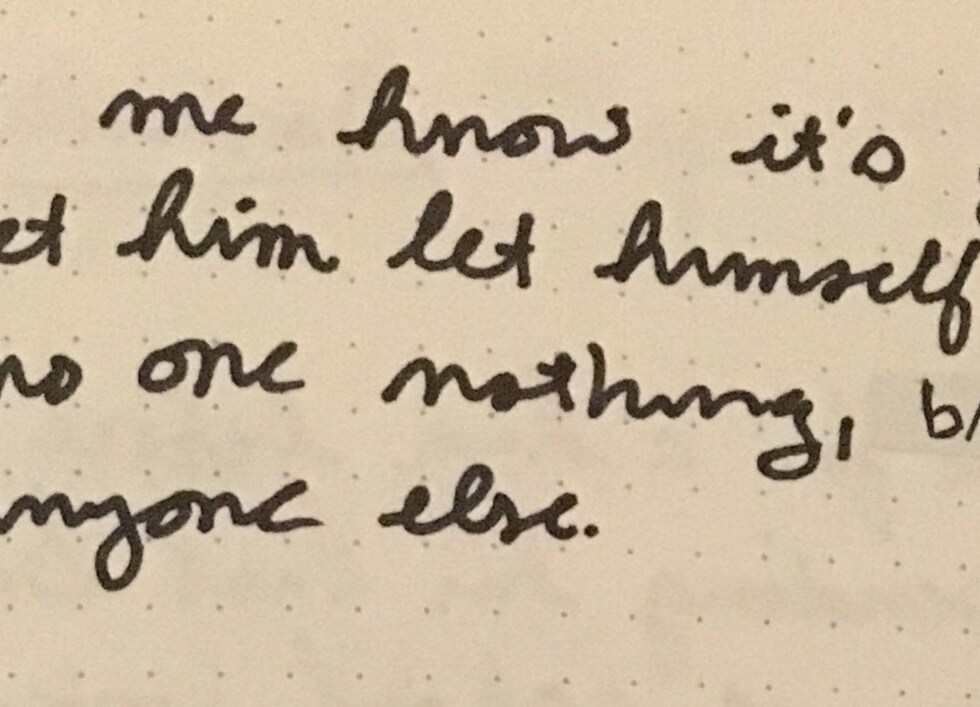 me know it's
et him let himself
no one nothing, b/
nyone else.